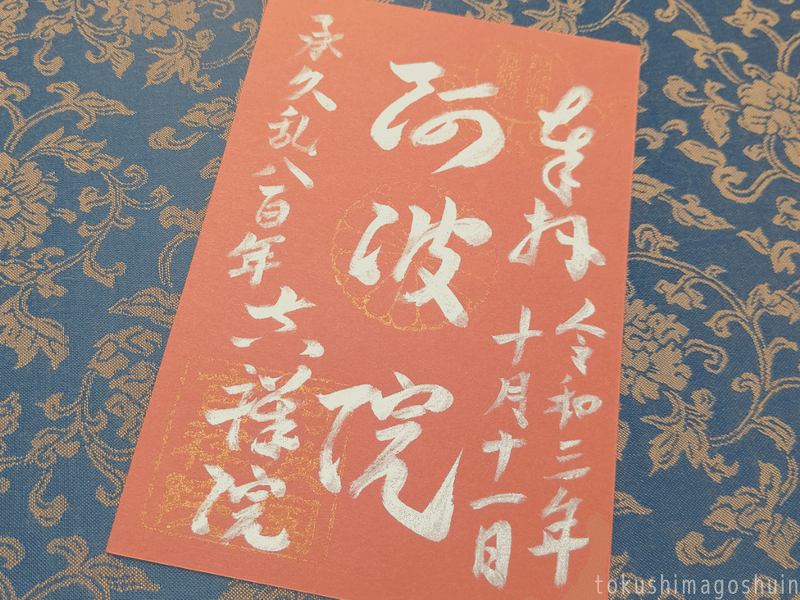 奉拝
令和三年
十月十一日
阿波院
承久乱八百年
吉祥院
tokushimagoshuin